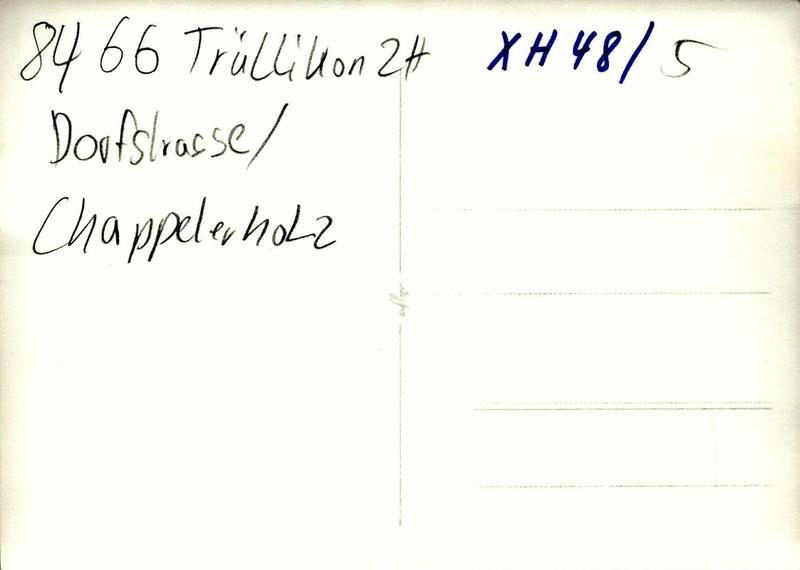 8466 Trüllikon ZH
XH 48/5
Dorfstrasse/
Chappelerholz